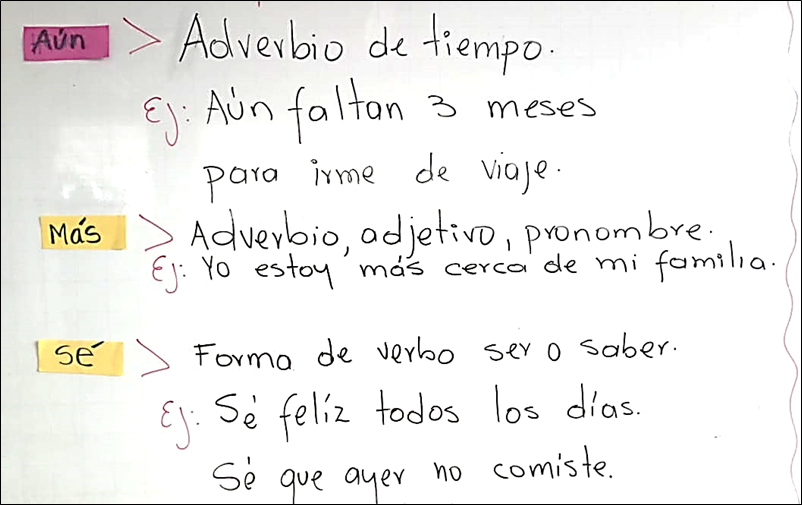 Aún > Adverbio de tiempo.
Ej: Aún faltan 3 meses
para irme de viaje.
Más > Adverbio, adjetivo, pronombre.
Ej: Yo estoy más cerca de mi familia.
Sé > Forma de verbo ser o saber.
Ej: Sé felíz todos los días.
Sé que ayer no comiste.